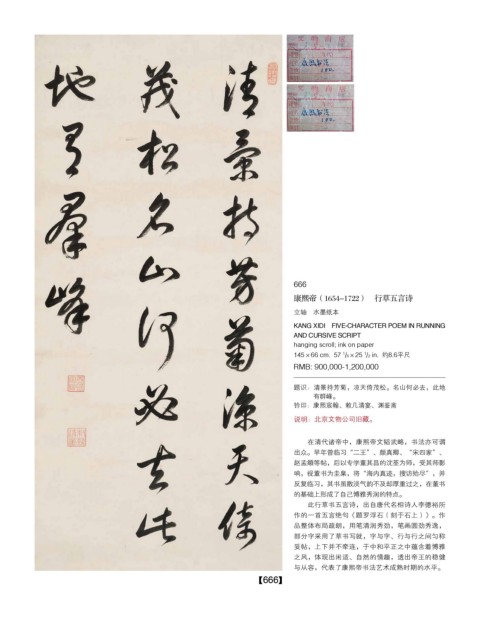 清景持芳菊凉天倚
茂松名山何必去此
地有群峰
666
康熙帝（1654-1722）　行草五言诗
立轴　水墨纸本
KANG XIDI　FIVE-CHARACTER POEM IN RUNNING
AND CURSIVE SCRIPT
hanging scroll; ink on paper
145×66 cm. 57 1/8×25 1/2 in. 约8.6平尺
RMB: 900,000-1,200,000
题识：清景持芳菊，凉天倚茂松。名山何必去，此地
有群峰。
钤印：康熙宸翰、敕几清晏、渊鉴斋
说明：北京文物公司旧藏。
在清代诸帝中，康熙帝文韬武略，书法亦可谓
出众。早年曾临习“二王”、颜真卿、“宋四家”、
赵孟頫等帖，后以专学董其昌的沈荃为师，受其师影
响，视董书为圭臬，将“海内真迹，搜访殆尽”，并
反复临习，其书虽敛淡气韵不及却厚重过之，在董书
的基础上形成了自己博雅秀润的特点。
此行草书五言诗，出自唐代名相诗人李德裕所
作的一首五言绝句《题罗浮石（刻于石上）》。作
品整体布局疏朗，用笔清润秀劲，笔画圆劲秀逸，
部分字采用了草书写就，字与字、行与行之间匀称
妥帖，上下并不牵连，于中和平正之中蕴含着博雅
之风，体现出闲适、自然的情趣，透出帝王的稳健
与从容，代表了康熙帝书法艺术成熟时期的水平。
【666】